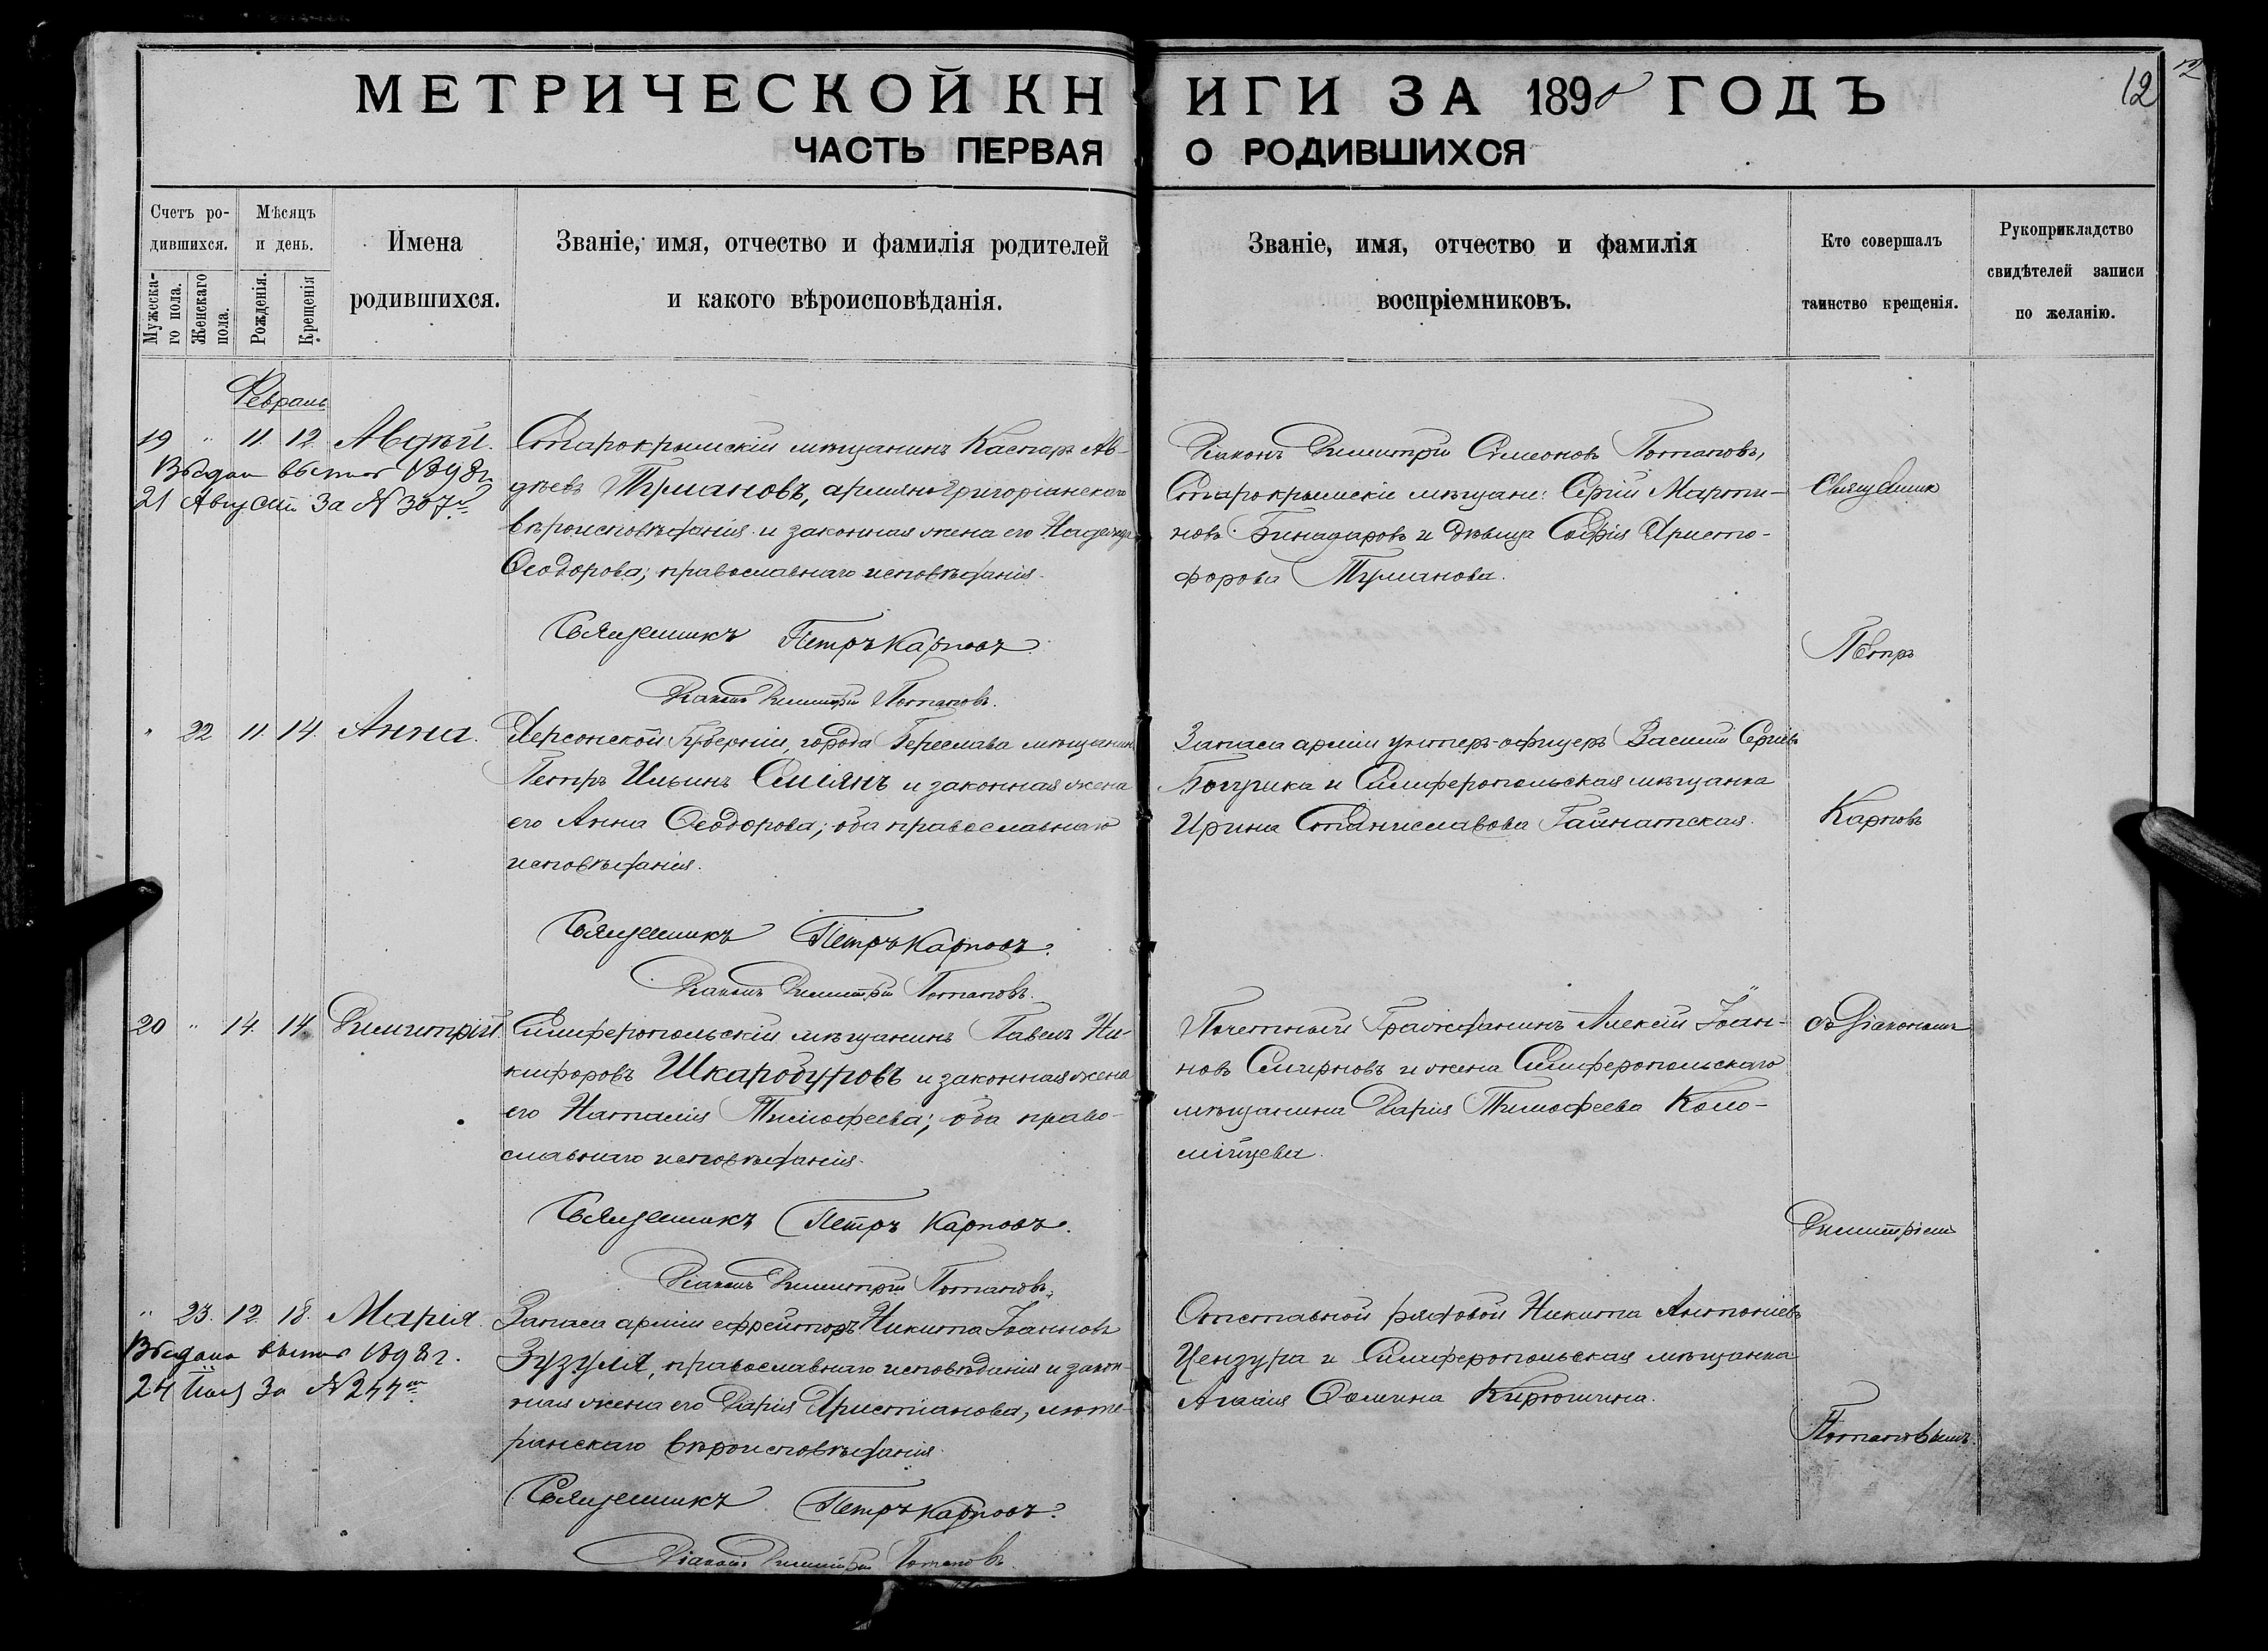 МЕТРИЧЕСКОЙ КНИГИ ЗА 1890 ГОДЪ
12
12
ЧАСТЬ ПЕРВАЯ О РОДИВШИХСЯ
Счетъ ро-
дившихся.
Мужеска-
го пола.
Женскаго
пола.
Мѣсяцъ
и день.
Рожденія.
Крещенія
Имена
родившихся.
Званіе, имя, отчество и фамилія родителей
и какого вѣроисповѣданія.
Званіе, имя, отчество и фамилія
воспріемниковъ.
Кто совершалъ
таинство крещенія.
Рукоприкладство
свидѣтелей записи
по желанію.
Февраль
19 " 11. 12. Авдѣй.
Выдан выпис 1898 г.
21 Август За № 307
Старокрымскій мѣщанинъ Каспаръ Ав-
дѣевъ Тумановъ, армяно-григоріанскаго
вѣроисповѣданія и законная жена его Надежда
Ѳеодорова; православнаго исповѣданія.
Священникъ Петръ Карповъ.
Діаконъ Димитрій Потаповъ.
Діаконъ Димитрій Симеоновъ Потаповъ,
Старокрымскіе мѣщане: Сергій Марти-
новъ Бинадаровъ и дѣвица Софія Христо-
форова Туманова.
" 22 11. 14. Анна.
Херсонской Губерніи, города Береслава мѣщанинъ
Петръ Ильинъ Смілянъ и законная жена
его Анна Ѳеодорова; оба православнаго
исповѣданія.
Священникъ Петръ Карповъ.
Діаконъ Димитрій Потаповъ.
Запаса арміи унтеръ-офицеръ Василій Сергіевъ
и Симферопольская мѣщанка
Ирина Станиславова Гайнатская.
20 " 14. 14. Димитрій.
Симферопольскій мѣщанинъ Павелъ Ни-
кифоровъ Шкаробуровъ и законная жена
его Наталія Тимофеева; оба право-
славнаго исповѣданія.
Священникъ Петръ Карповъ.
Діаконъ Димитрій Потаповъ.
Почетный Гражданинъ Алексій Іоан-
новъ Смирновъ и жена Симферопольскаго
мѣщанина Дарія Тимофеева Коло-
мійцева.
" 23. 12. 18. Марія.
Выдана выпис 1898 г.
24 За № 244
Запаса арміи ефрейторъ Никита Іоанновъ
Зузуля, православнаго исповѣданія и закон-
ная жена его Дарія Христіанова, люте-
ранскаго вѣроисповѣданія.
Священникъ Петръ Карповъ.
Діаконъ Димитрій Потаповъ.
Отставной рядовой Никита Антоніевъ
Цензура и Симферопольская мѣщанка
Агафія Ѳомина Кирюшина.
Священникъ
Петръ
Карповъ
съ Діакономъ
Димитріемъ
Потаповымъ.